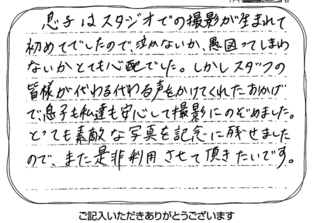 息子はスタジオでの撮影が生まれて
初めてでしたので、泣かないか、愚図ってしまわ
ないかとても心配でした。しかしスタッフの
皆様が代わる代わる声をかけてくれたおかげ
で、息子も私達も安心して撮影にのぞめました。
とっても素敵な写真を記念に残せました
ので、また是非利用させて頂きたいです。
ご記入いただきありがとうございます